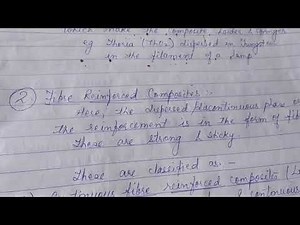 which make the composite harder & stronger
eg Thoria (ThO2) dispersed in tungsten
in the filament of a lamp.
2 Fibre Reinforced Composites:-
Here, the dispersed discontinuous phase or
the reinforcement is in the form of fibre
These are strong & sticky.
These are classified as:-
Continuous fibre reinforced composites
& continuous